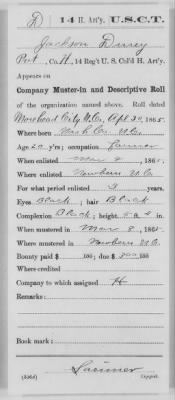 D | 14 H. Art'y. | U.S.C.T.
Jackson
Pvt, Co. H, 14 Reg't U. S. Col'd H. Art'y.
Appears on
Company Muster-in and Descriptive Roll
of the organization named above. Roll dated
Morehead City N.C., Apl 30, 1865.
Where born Nash Co. N.C.
Age 20 y'rs; occupation Farmer
When enlisted Mar 2, 1865.
Where enlisted Newbern N.C.
For what period enlisted 3 years.
Eyes Black; hair Black
Complexion Black; height 5 ft. 2 in.
When mustered in Mar 8, 1865.
Where mustered in Newbern N.C.
Bounty paid $ 100; due $ 300 100
Where credited
Company to which assigned H
Remarks:
Book mark:
Larimer
(356d) Copyist.